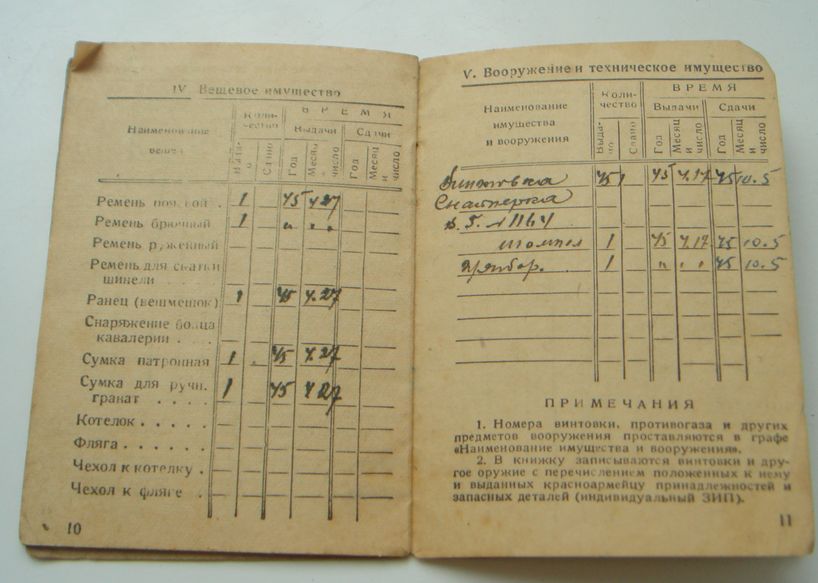 IV Вещевое имущество
Наименование вещей
Количество
ВРЕМЯ
Выдано
Сдано
Выдачи
Сдачи
Год
Месяц и число
Год
Месяц и число
Ремень поясной . 1 45 4.27
Ремень брючный 1 " " "
Ремень ружейный
Ремень для скатки
шинели . . .
Ранец (вещмешок) 1 45 4.27
Снаряжение бойца
кавалерии . . .
Сумка патронная 1 45 4.27
Сумка для ручн.
гранат . . . . 1 45 4.27
Котелок . . . . .
Фляга . . . . . .
Чехол к котелку .
Чехол к фляге .
10
V. Вооружение и техническое имущество
Наименование
имущества
и вооружения
Количество
ВРЕМЯ
Выдано
Сдано
Выдачи
Сдачи
Год
Месяц и число
Год
Месяц и число
Винтовка 1 45 4.17 45 10.5
Снайперка
1164
шомпол 1 45 4.17 45 10.5
1 " " " 45 10.5
ПРИМЕЧАНИЯ
1. Номера винтовки, противогаза и других
предметов вооружения проставляются в графе
«Наименование имущества и вооружения».
2. В книжку записываются винтовки и дру-
гое оружие с перечислением положенных к нему
и выданных красноармейцу принадлежностей и
запасных деталей (индивидуальный ЗИП).
11